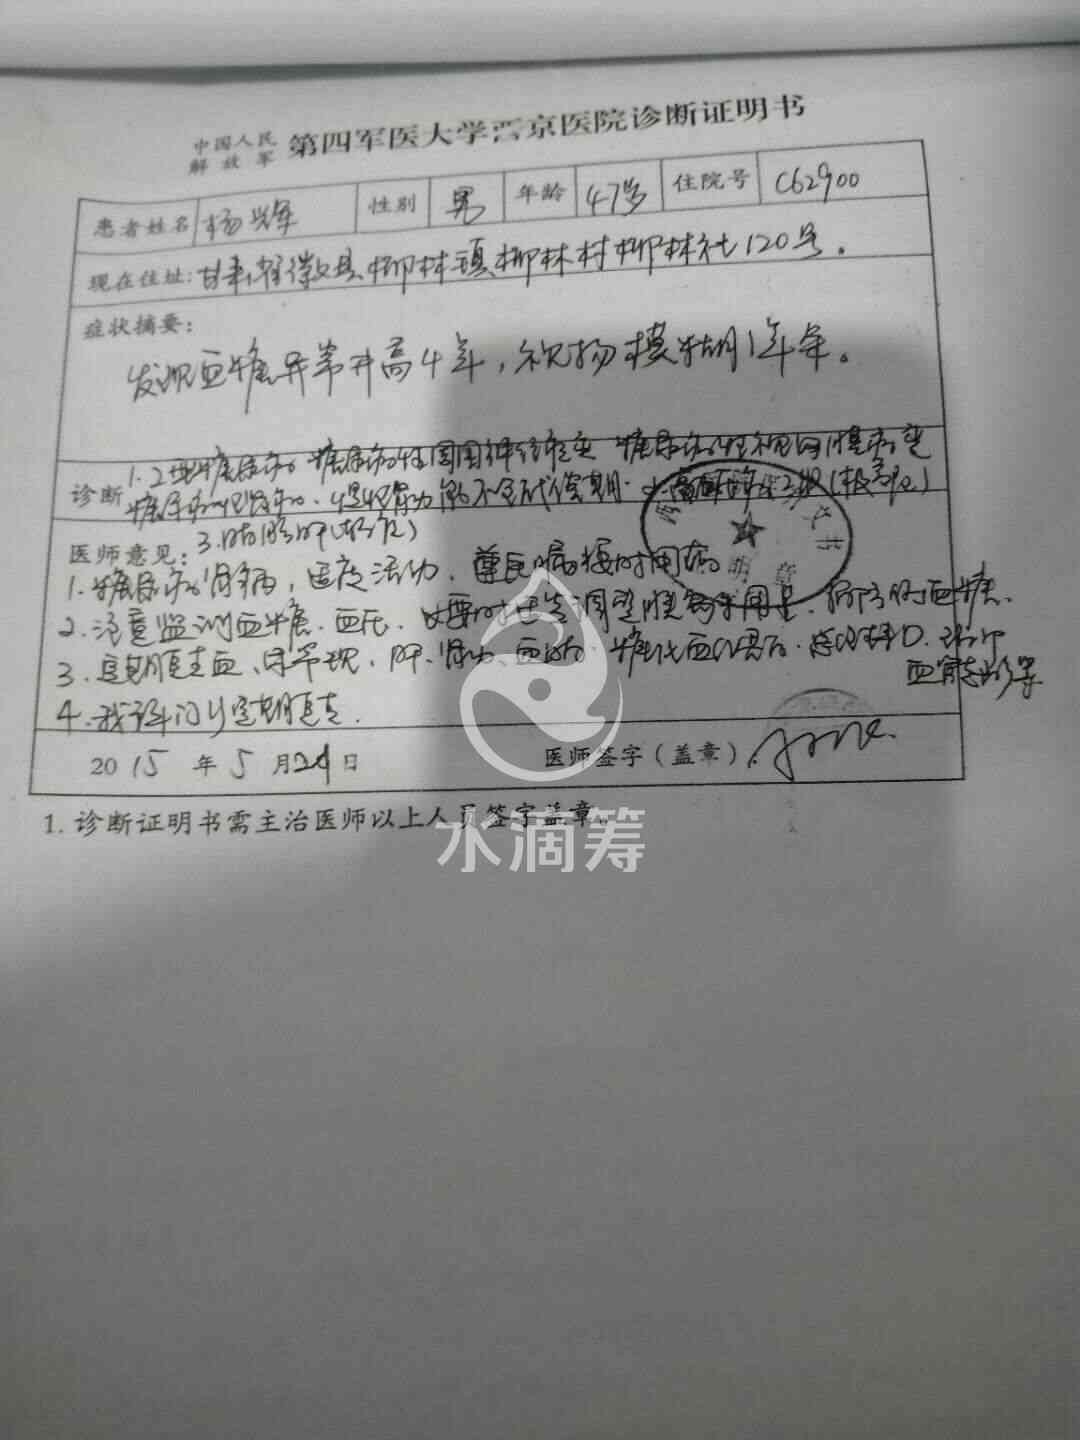 中国人民
解放军 第四军医大学西京医院诊断证明书
患者姓名 杨 性别 男 年龄 47岁 住院号 C62900
现在住址: 甘肃省徽县柳林镇柳林村柳林社120号。
症状摘要:
发现血糖异常升高4年,视物模糊1年余。
诊断 1.2型糖尿病 糖尿病性周围神经病变 糖尿病性视网膜病变
糖尿病 肾病 慢性肾功能不全 代偿期 2.高血压病 级(极高危)
3.脂肪肝(轻度)
医师意见:
1.糖尿病肾病,适度活动,遵医嘱按时用药
2.注意监测血糖、血压,必要时 调整胰岛素用量,预防低血糖.
3.定期复查血、尿常规,肝、肾功、血脂、糖化血红蛋白
4.我科门诊定期复查.
2015 年 5 月 24 日 医师签字(盖章)
1. 诊断证明书需主治医师以上人员签字盖章。
水滴筹